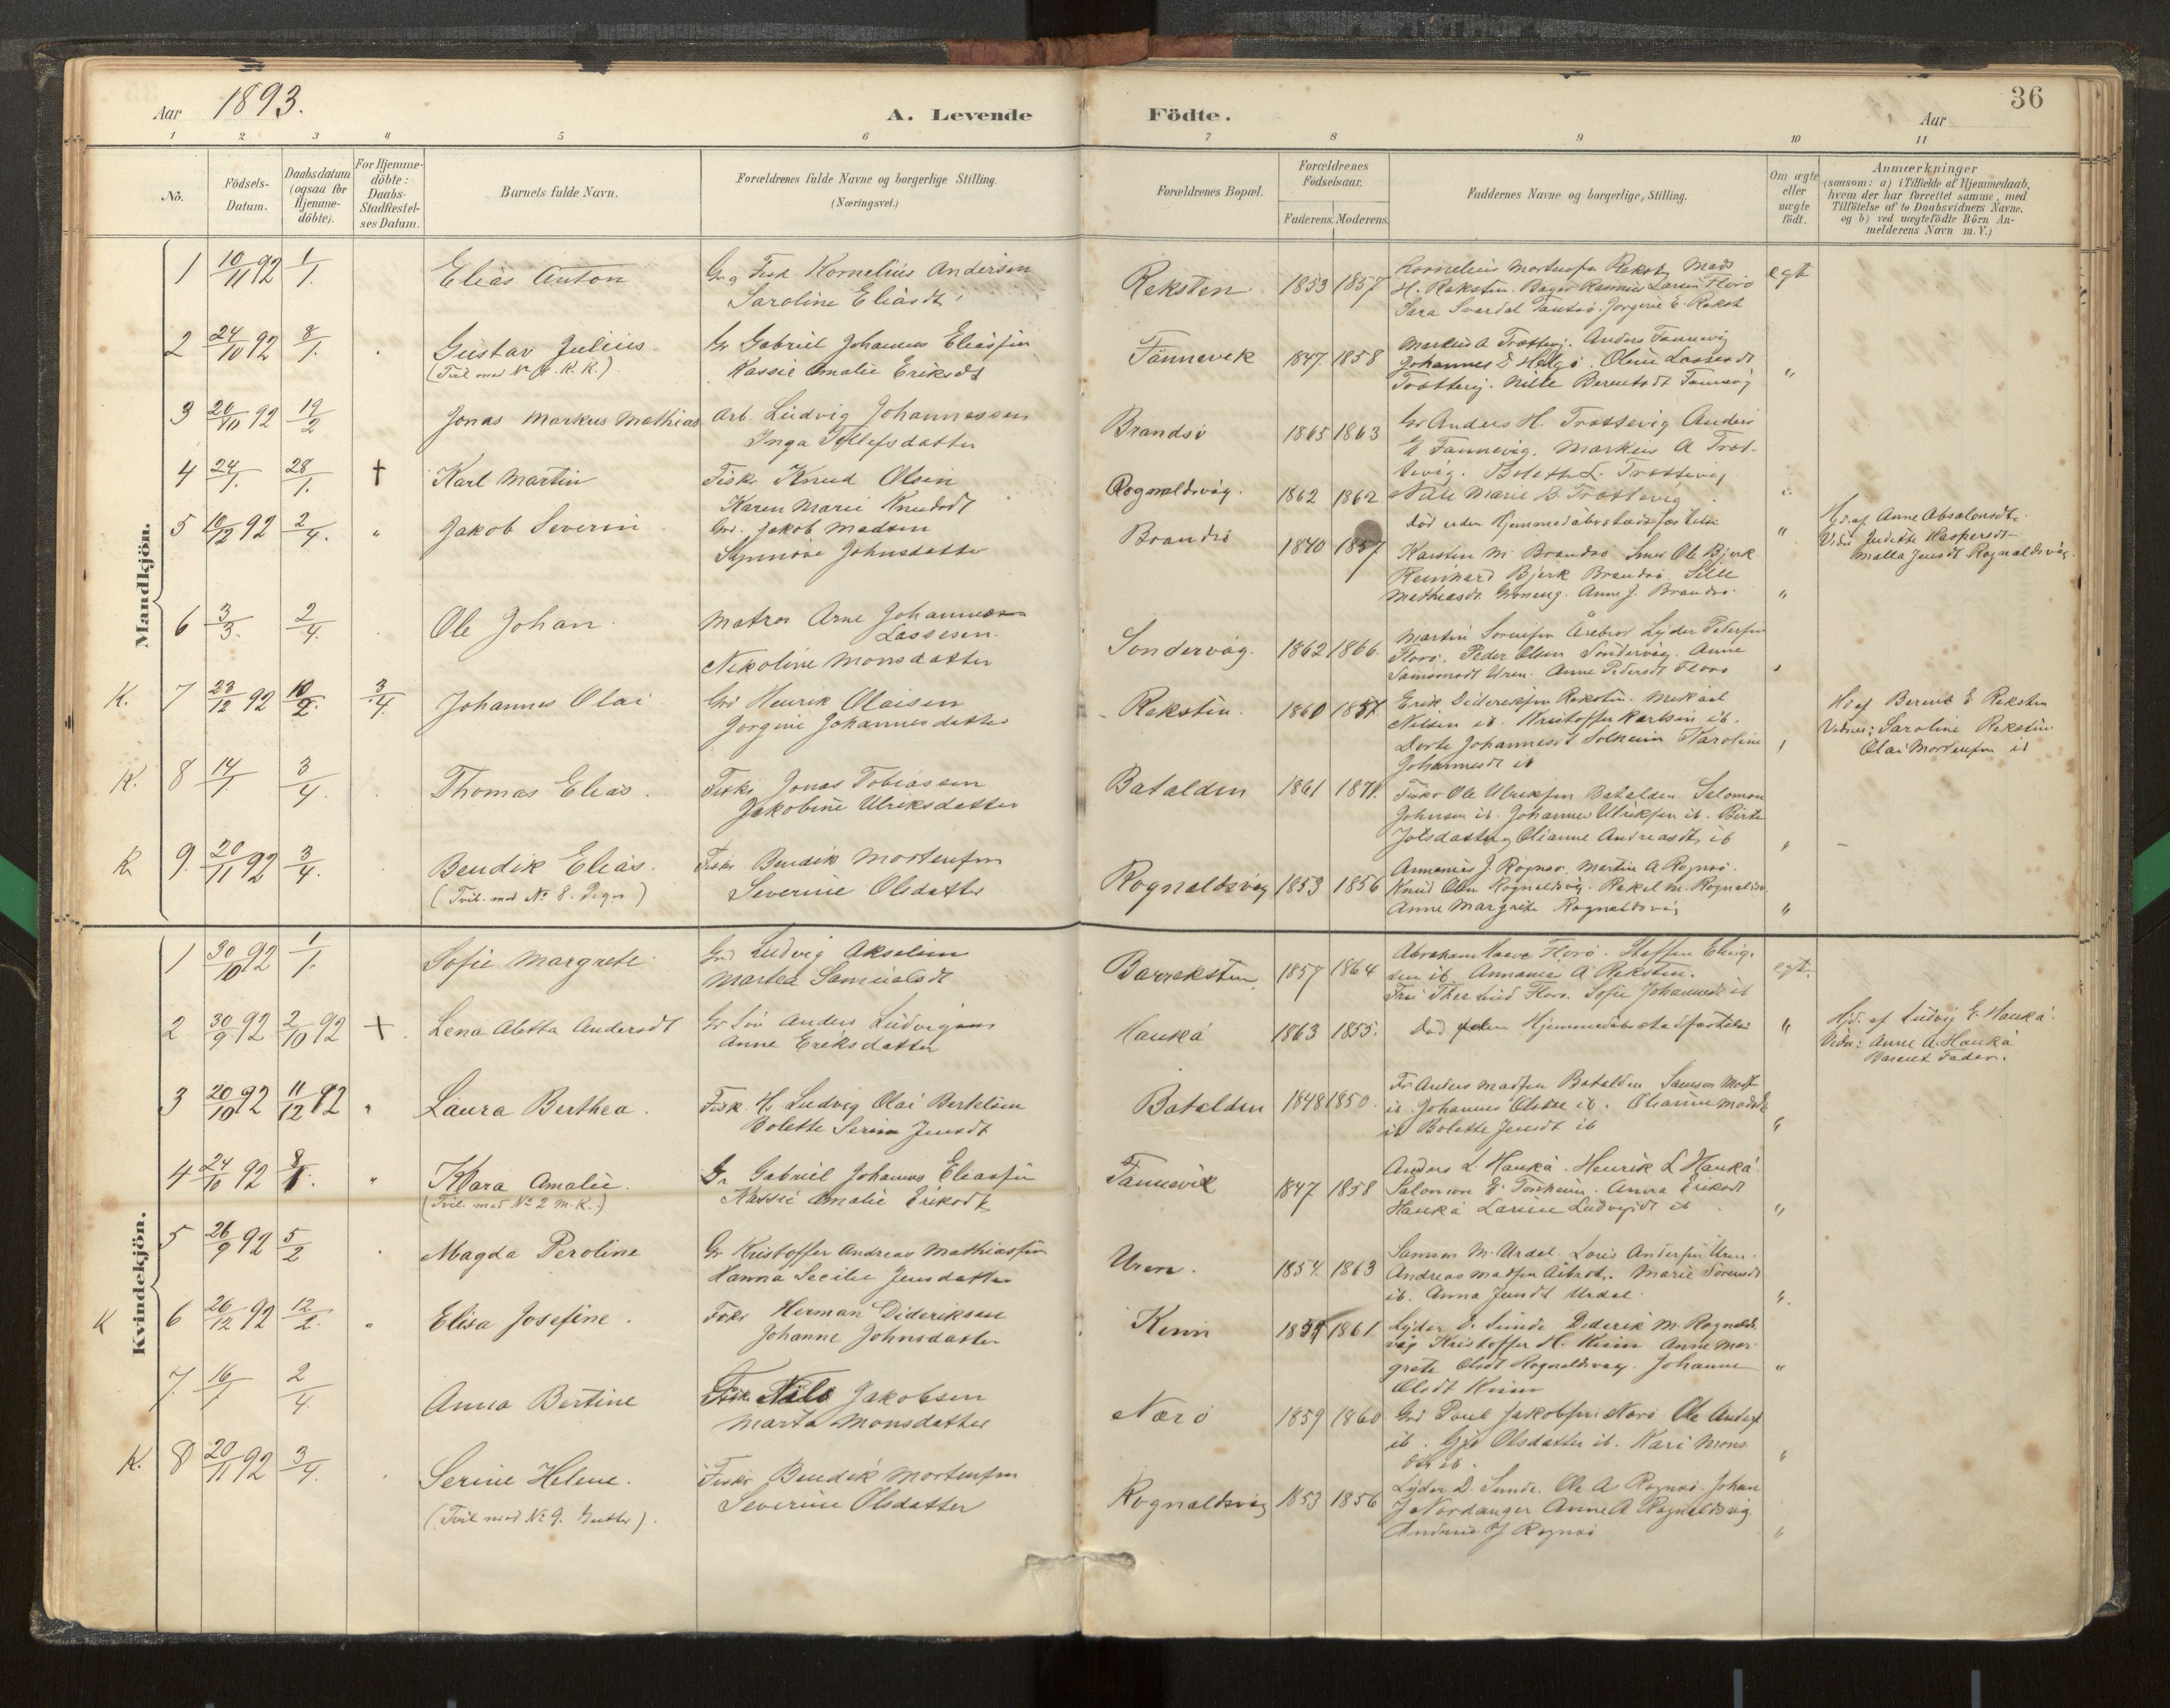 Aar 1893.
A. Levende Födte.
36
Aar
1 2 3 4 5 6 7 8 9 10 11
No.
Födsels-Datum.
Daabsdatum (ogsaa for Hjemme-döbte).
For Hjemme-döbte: Daabs-Stadfæstel-ses Datum.
Barnets fulde Navn.
Forældrenes fulde Navne og borgerlige Stilling.
(Næringsvei.)
Forældrenes Bopæl.
Forældrenes Födselsaar.
Faderens. Moderens.
Faddernes Navne og borgerlige, Stilling.
Om ægte eller uægte födt.
Anmærkninger
(saasom: a) i Tilfælde af Hjemmedaab,
hvem der har forrettet samme, med
Tilföielse af to Daabsvidners Navne.
og b) ved uægtefödte Börn An-
melderens Navn m. V.)
Mandkjön.
1 10/11 92 1/1. Elias Anton
Gr. og Fisk Kornelius Andersen
Saroline Eliasdt
Reksten 1853 1857
Kornelius Mortensen Rekst Mads
H. Reksten. Bager Rasmus Larsen Florö
Sara Svardal Jorgine E. Rekst
egt
2 24/10 92 8/1. Gustav Julius
(Tvil. med No 4. K. K.)
Gr Gabriel Johannes Eliassen
Kassie Amalie Eriksdt
Fannevek 1847. 1858
Markus A Trættevig. Anders Fannevig
Johannes Helgö. Oline Lassesdt
Trættevig. Nille Berentsdt
"
3 20/10 92 19/2 Jonas Markus Mathias
Arb. Ludvig Johannessen
Inga Tollefsdatter
Brandsö 1865 1863
Gr Anders H. Trættevig Anders
E Fannevig. Markus A Træt-
tevig. Bolette L. Trættevig
Nille Marie B. Trættevig
4 24/1. 28/1. † Karl Martin
Fisk. Knud Olsen
Karen Marie Knudsdt
Rognaldsvåg. 1862 1862
Död uden Hjemmedåbsstadfæstelse
"
Hjd. af Anne Absalonsdt.
Vidn Judithe Kaspersdt
Malla Jensdt Rognaldsvåg.
5 10/12 92 2/4. " Jakob Severin
Grd. Jakob Madsen
Synnöve Johnsdatter
Brandsö 1840 1857
Karsten M. Brandsö Smed Ole Bjerk
Reinhard Bjerk Brandsö. Sille
Mathiasdt Gröneng. Anne J. Brandsö.
"
6 3/3. 2/4. Ole Johan.
Matros Arne Johannesen
Lassesen.
Nikoline Monsdatter
Sondervåg. 1862 1866.
Martin Sörensen Årebrot Lyder Pedersen
Florö. Peder Olsen Sondervåg. Anne
Samsonsdt Uren. Anne Pedersdt Florö
K. 7 23/12 92 10/2. 3/4. Johannes Olai
Grd Henrik Olaisen
Jorgine Johannesdatter
Reksten. 1860 1857.
Erik Dideriksen Reksten. Mikael
Nilsen ib. Kristoffer Karlsen ib.
Dorte Johannesdt Solheim Karoline
Johannesdt ib
Hj af Berent E Reksten
Vidner: Saroline Reksten
Olai Mortensen ib
K. 8 14/1 3/4. Thomas Elias.
Fisker Jonas Tobiassen
Jakobine Ulriksdatter
Batalden 1861 1871.
Fisker Ole Ulriksen Batalden. Salomon
Johnsen ib. Johannes Ulriksen ib. Birte
Joelsdatter Olianne Andreasdt ib
K 9. 20/11 92 3/4. Bendik Elias.
(Tvil. med No 8. Piger)
Fisker Bendik Mortensen
Severine Olsdatter
Rognaldsvåg 1853 1856
Annanias J. Rognsö. Martin A Rognsö.
Knud Olsen Rognaldsvåg. Rakel M. Rognaldsv.
Anne Margrete Rognaldsvåg
"
Kvindekjön.
1 30/10 92 1/1. Sofie Margrete
Grd Ludvig Akselsen
Martea Samuelsdt
Barrekstenn. 1857 1864
Abraham Florö. Steffen Eling-
sen ib. Annanias A Reksten.
Fru Florö. Sofie Johannesdt ib
egt.
2 30/9 92 2/10 92 † Lena Aletta Andersdt
Gr Sön Anders Ludvigsen
Anne Eriksdatter
Haukå 1863 1855.
Död uden Hjemmedåbsstadfæstelse
"
Hjd. af Ludvig E. Haukå.
Vidn: Anne A. Haukå
Barnets Fader.
3 20/10 92 11/12 92 " Laura Berthea.
Fisk. H. Ludvig Olai Bertelsen
Bolette Serine Jensdt
Batalden 1848 1850.
Fr Anders Madsen Batalden Samson Mads
ib. Johannes Olsen ib. Olianne Madsdt
ib Bolette Jensdt ib
"
4 24/10 92 8/1. " Klara Amalie.
(Tvil. med No 2 M. K.)
Gr Gabriel Johannes Eliassen
Kassie Amalie Eriksdt
Fannevik 1847 1858
Anders L. Haukå. Henrik L Haukå.
Salomon E. Tonheim. Anna Eriksdt
Haukå Larine Ludvigsdt ib
"
5 26/9 92 5/2 Magda Peroline
Gr Kristoffer Andreas Mathiassen
Hanna Secilie Jensdatter
Uren. 1854. 1863
Samson M. Urdal. Lois Andersen Uren.
Andreas Madsen Årbrot. Marie Sorensdt
ib. Anna Jensdt Urdal.
"
K 6 26/12 92 12/2. " Elisa Josefine.
Fisker Herman Dideriksen
Johanne Johnsdatter
Kinn 1859 1861
Lyder D. Sunde Diderik M. Rognalds-
våg Kristoffer H. Kinn Anne Mar-
grete Olsdt Rognaldsvåg. Johanne
Olsdt Kinn
"
7. 16/1 2/4. Anna Bertine
Fisk. Nils Jakobsen
Marta Monsdatter
Nærö 1859 1860
Grd Paul Jakobsen Nærö Ole Anders
ib. Olsdatter ib. Kari Mons
ib.
"
K. 8 20/11 92 3/4. Serine Helene.
(Tvil med No 9. Gutter).
Fisker Bendik Mortensen
Severine Olsdatter
Rognaldsvåg 1853 1856
Lyder D. Sunde. Ole A Rognsö. Johan
J Nordanger Anne A Rognaldsvåg.
Andrine J Rognsö
"